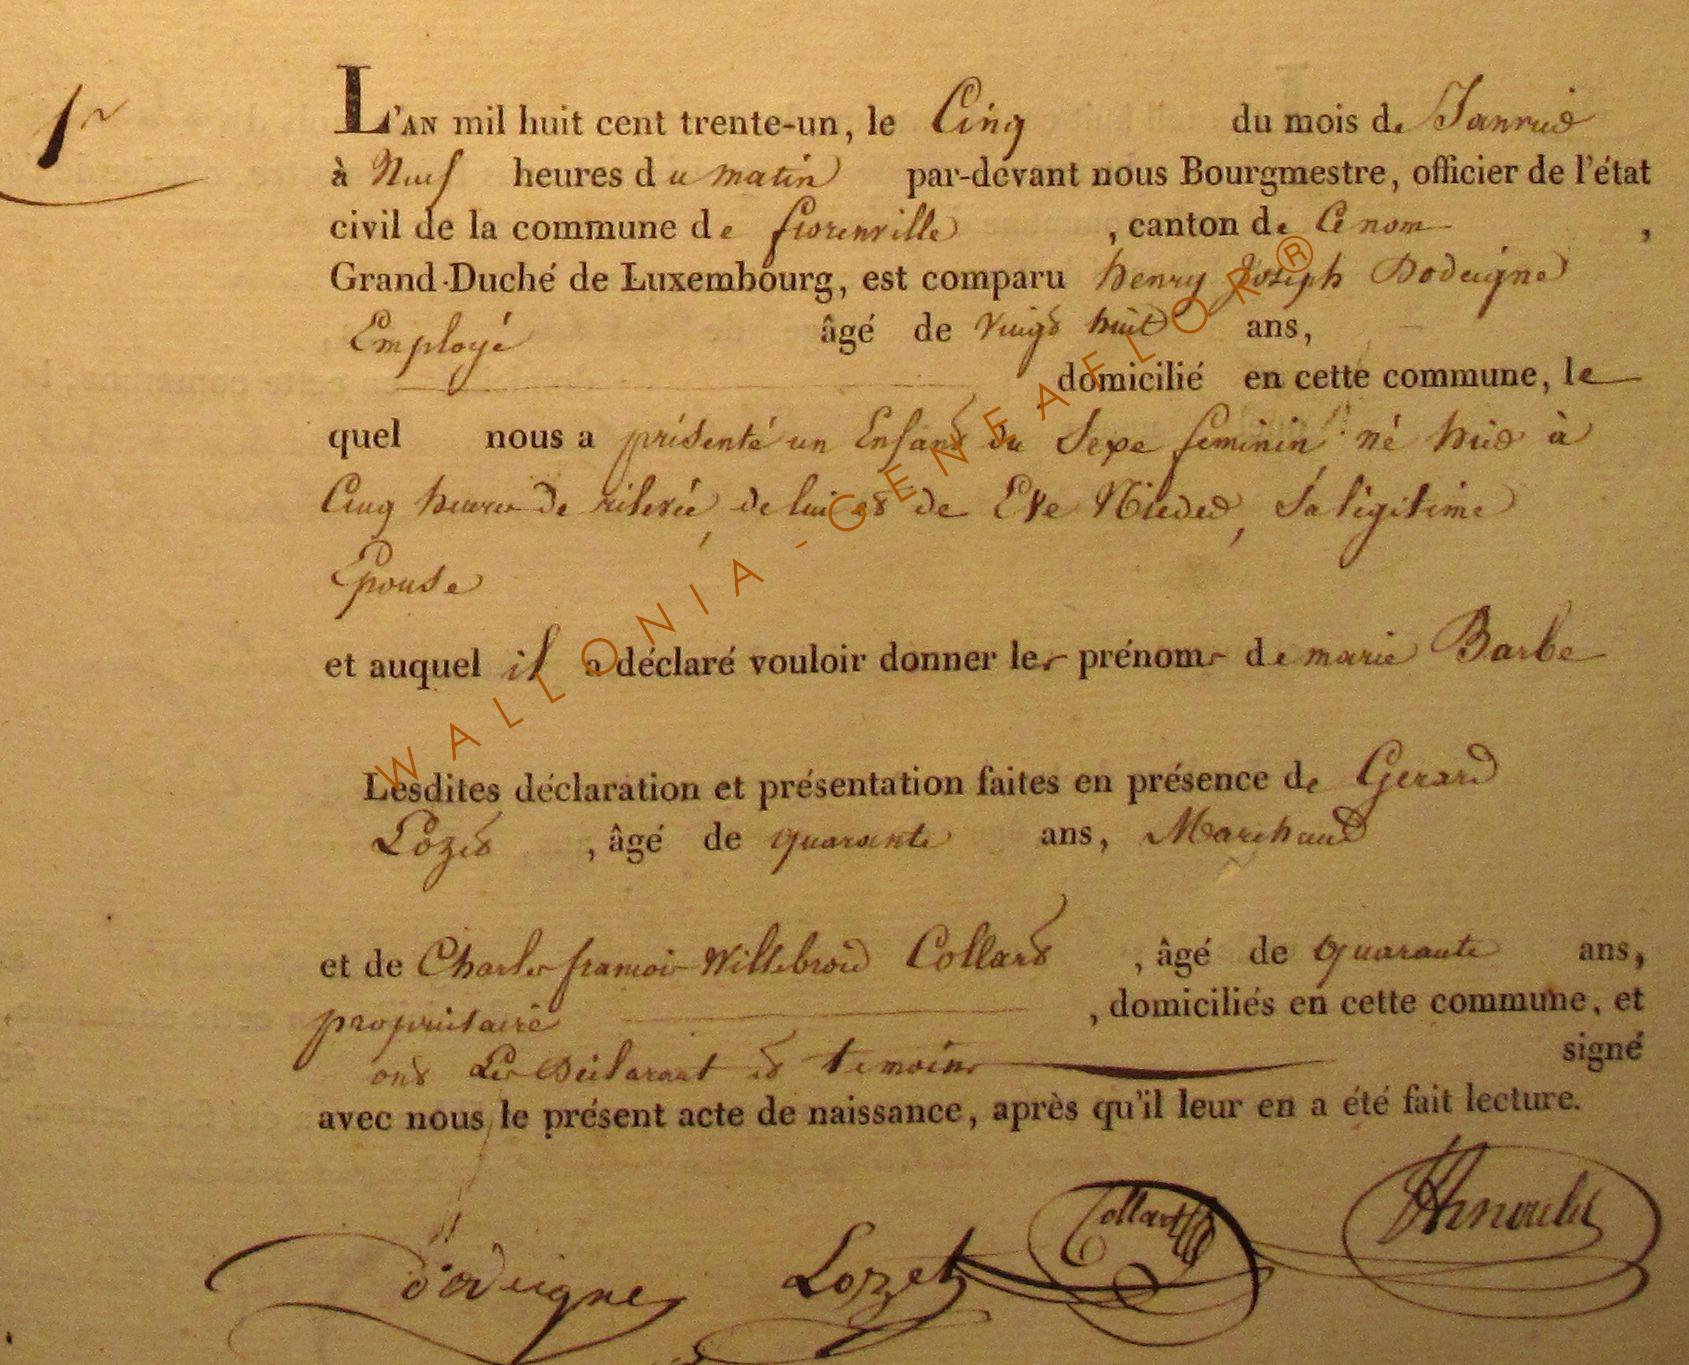 1r
L'AN mil huit cent trente-un, le Cinq du mois de Janvier
à Neuf heures du matin par-devant nous Bourgmestre, officier de l'état
civil de la commune de florenville, canton de Ce nom,
Grand-Duché de Luxembourg, est comparu henry Joseph Dodeigne
Employé âgé de vingt huit ans,
domicilié en cette commune, le
quel nous a présenté un Enfant du Sexe feminin né hier à
Cinq heures de relevée, de lui et de Eve Nieder, Sa légitime
Epouse
et auquel il a déclaré vouloir donner les prénoms de marie Barbe
Lesdites déclaration et présentation faites en présence de Gerard
Lozet, âgé de quarante ans, Marchand
et de Charles françois Willebrord Collard, âgé de quarante ans,
propriétaire, domiciliés en cette commune, et
ont Les Déclarant et temoins signé
avec nous le présent acte de naissance, après qu'il leur en a été fait lecture.
Dodeigne Lozet Collart
WALLONIA-GENEALOR®